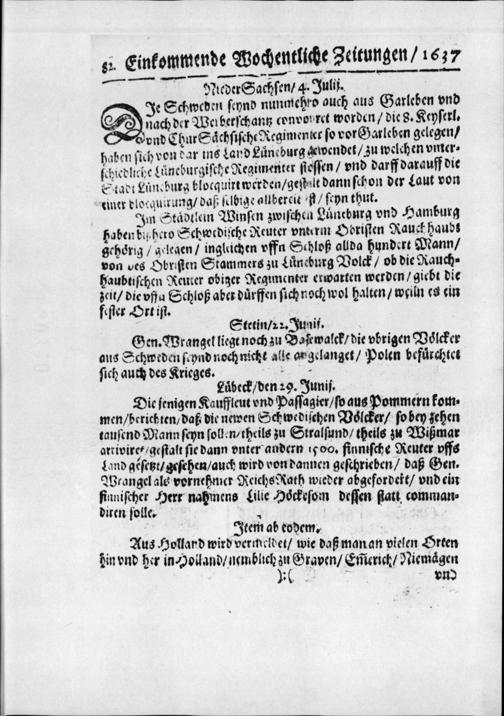 82. Einkommende Wochentliche Zeitungen/ 1637
NiederSachsen/ 4. Julij.
DIe Schweden seynd nunmehro auch aus Garleben vnd
nach der Werberschantz convoyret worden/ die 8. Keyserl.
vnd Chur Sächsische Regimenter so vor Garleben gelegen/
haben sich von dar ins Land Lüneburg gewendet/ zu welchen vnter-
schiedliche Lüneburgische Regimenter stossen/ vnd darff darauff die
Stadt Lüneburg blocquirt werden/ gestalt dann schon der Laut von
einer blocquirung/ daß selbige allbereit ist/ seyn thut.
Im Städtlein Winsen zwischen Lüneburg vnd Hamburg
haben bißhero Schwedische Reuter vnterm Obristen Rauchhaubt
gehörig/ gelegen/ ingleichen vffn Schloß allda hundert Mann/
von des Obristen Stammers zu Lüneburg Volck/ ob die Rauch-
haubtischen Reuter obiger Regimenter erwarten werden/ giebt die
zeit/ die vffn Schloß aber dürffen sich noch wol halten/ weiln es ein
fester Ort ist.
Stetin/ 22. Junij.
Gen. Wrangel liegt noch zu Pasewalck/ die vbrigen Völcker
aus Schweden seynd noch nicht alle angelanget/ Polen befürchtet
sich auch des Krieges.
Lübeck/ den 29. Junij.
Die jenigen Kauffleut vnd Passagier/ so aus Pommern kom-
men/ berichten/ daß die newen Schwedischen Völcker/ so bey zehen
tausend Mann seyn sollen/ theils zu Stralsund/ theils zu Wißmar
arrivire/ gestalt sie dann vnter andern 1500. finnische Reuter vffs
Land gesetzt/ gesehen/ auch wird von dannen geschrieben/ daß Gen.
Wrangel als vornehmer ReichsRath wieder abgefordert/ vnd ein
finnischer Herr nahmens Lilie Höckesom dessen statt comman-
diren solle.
Item ab eodem.
Aus Holland wird vermeldet/ wie daß man an vielen Orten
hin vnd her in Holland/ nemblich zu Graven/ Em̃erich/ Niemägen
):( vnd